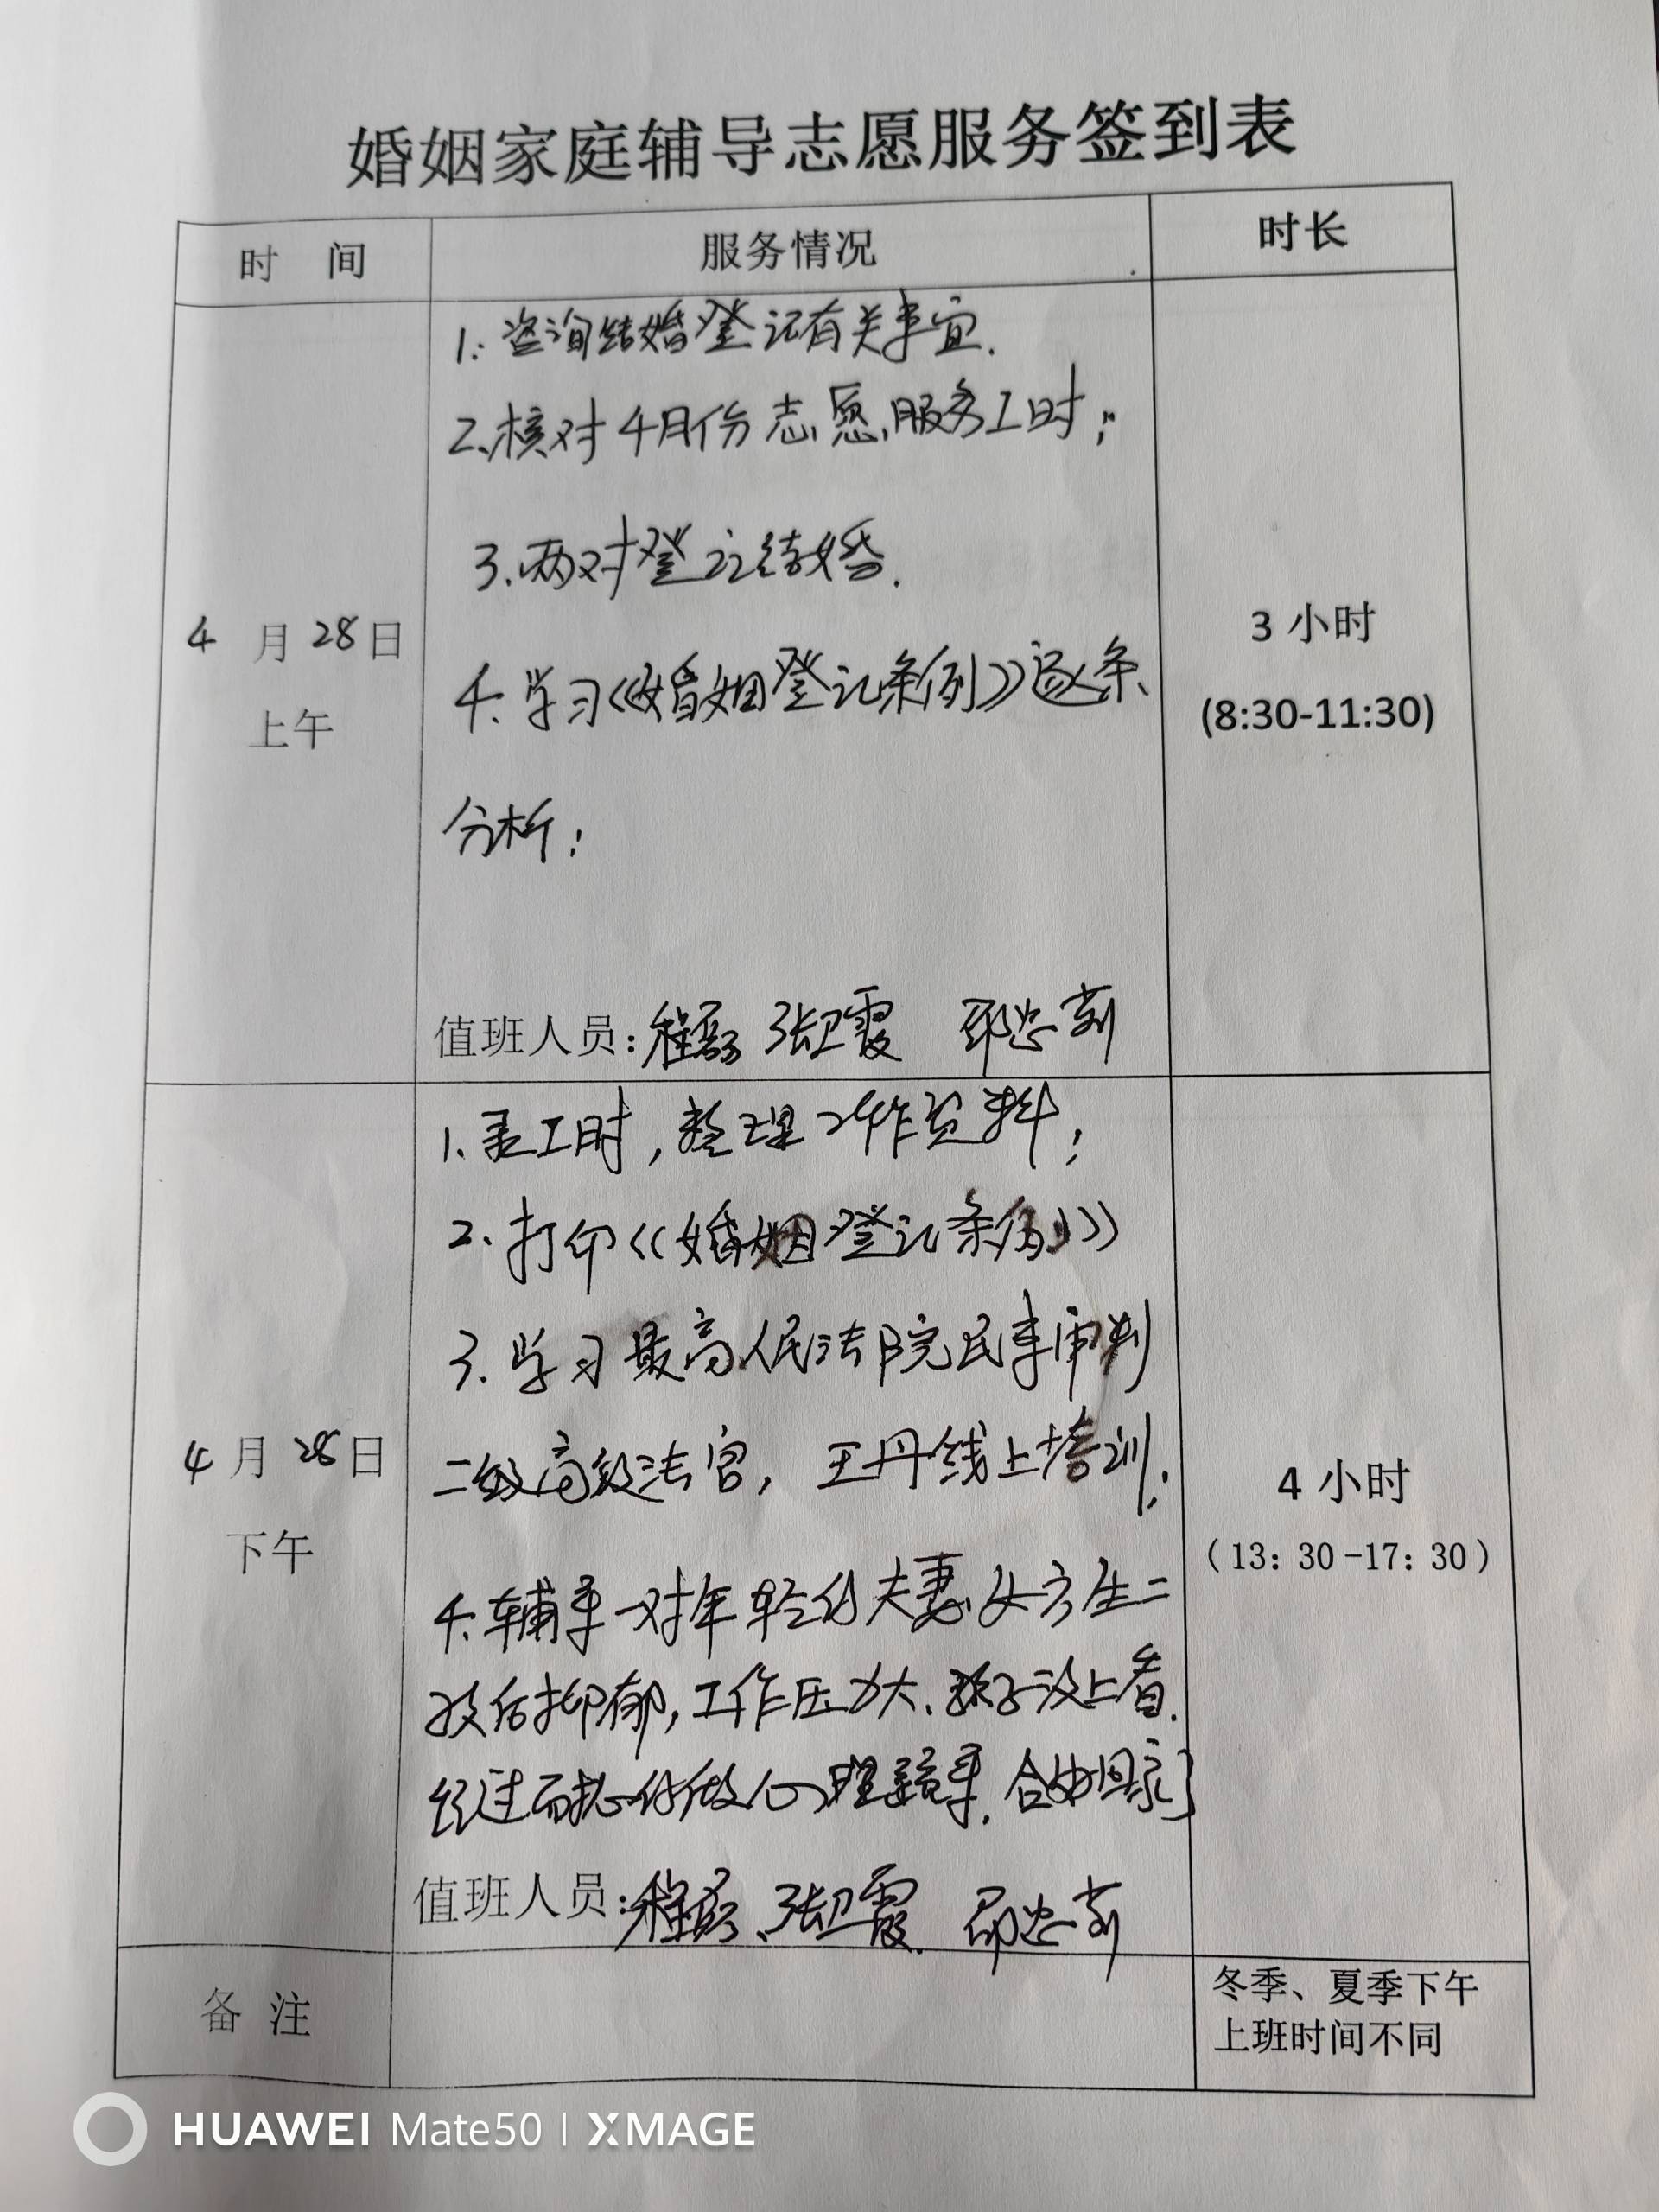 婚姻家庭辅导志愿服务签到表
时 间 服务情况 时长
1. 咨询结婚登记有关事宜.
2.核对4月份志愿服务工时;
3.两对登记结婚.
4.学习《婚姻登记条例》逐条
分析;
4 月 28日
上午
3 小时
(8:30-11:30)
值班人员: 程 张卫霞 邵忠
1.录工时,整理工作资料;
2.打印《婚姻登记条例》
3.学习最高人民法院民事审判
二级高级法官, 王丹线上培训;
4.辅导一对年轻的夫妻,女方生二
孩后抑郁,工作压力大.孩子没上看.
经过 做心理疏导. 回家
4 月 28日
下午
4 小时
(13: 30-17: 30)
值班人员: 程 、张卫霞. 邵忠
备 注
冬季、夏季下午
上班时间不同
HUAWEI Mate50 | XMAGE